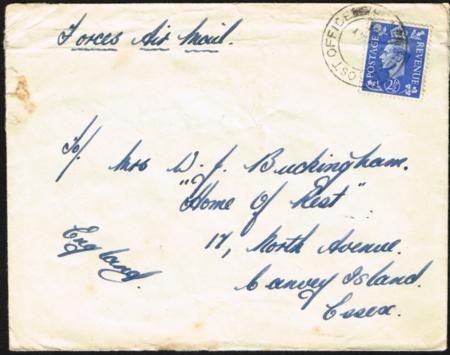 Forces Air Mail.
POST OFFICE
POSTAGE REVENUE
2½
To/. Mrs D. J. Buckingham.
"Home Of Rest"
17, North Avenue.
Canvey Island.
Essex.
England.